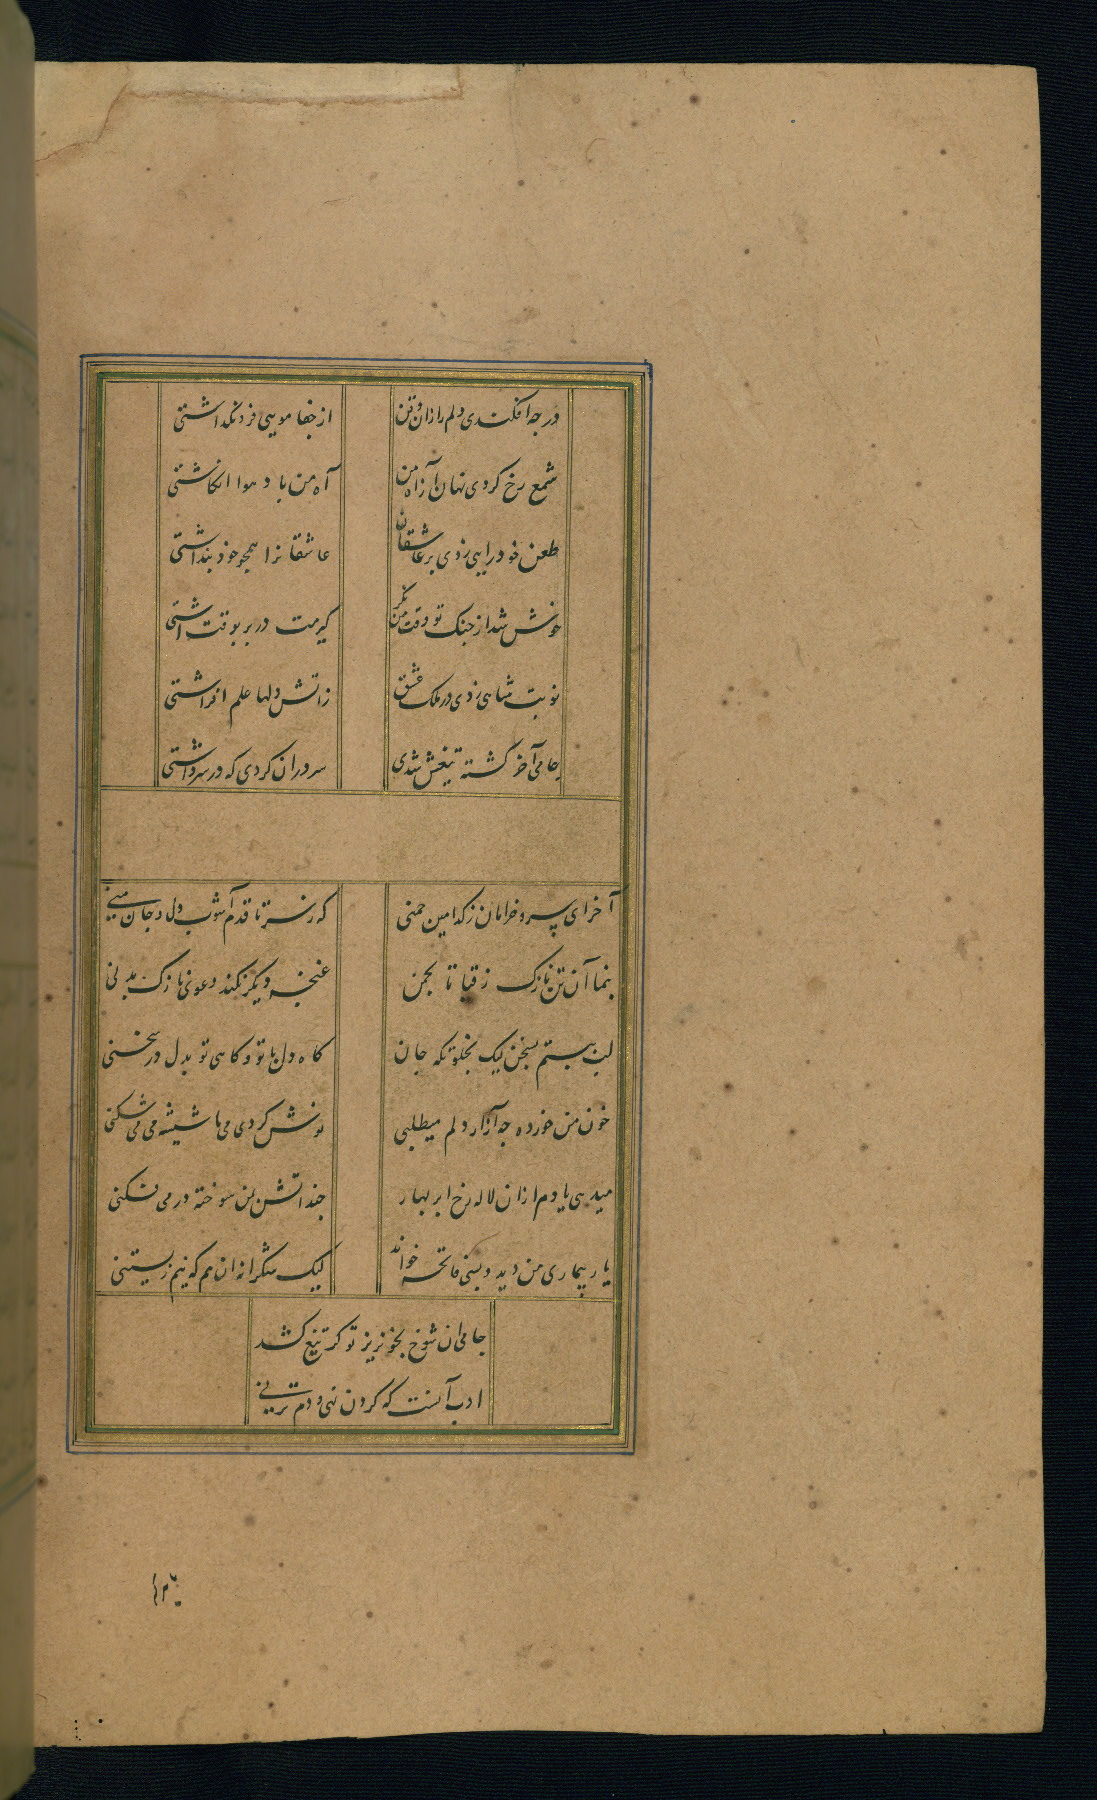 در چه افکندی دلم را زان ذقن
از جفا مویی فرو نگذاشتی
شمع رخ کردی نهان از آه من
آه من باد هوا انکاشتی
طعن خود رایی زدی بر عاشقان
عاشقانرا همچو خود پنداشتی
خوش شد از جنک تو وقت من
نوبت شاهی زدی در ملک عشق
زاتش دلها علم افراشتی
جامی آخر کشته تیغش شدی
سر در ان کردی که در سر داشتی
آخر ای سرو خرامان ز کدامین چمنی
که ز سر تا قدم آشوب دل و جان منی
بنما آن تن نازک ز قبا تا بچمن
غنچه دیکر نکند دعوی نازک بدنی
لب ببستم ز سخن لیک بخلوتکه جان
کاه دل با تو و کاهی تو بدل در سخنی
خون من خورده چه آزار دلم میطلبی
نوش کردی می ما شیشه می می شکنی
میدهی یادم ازان لاله رخ ابر بهار
چند اتش بمن سوخته در می فکنی
یار بیماری من دید و فاتحه خواند
لیک شکرانه ان هم که نیم زیستنی
جامی ان شوخ بخونریز تو کر تیغ کشد
ادب آنست که کردن نهی و دم نزنی